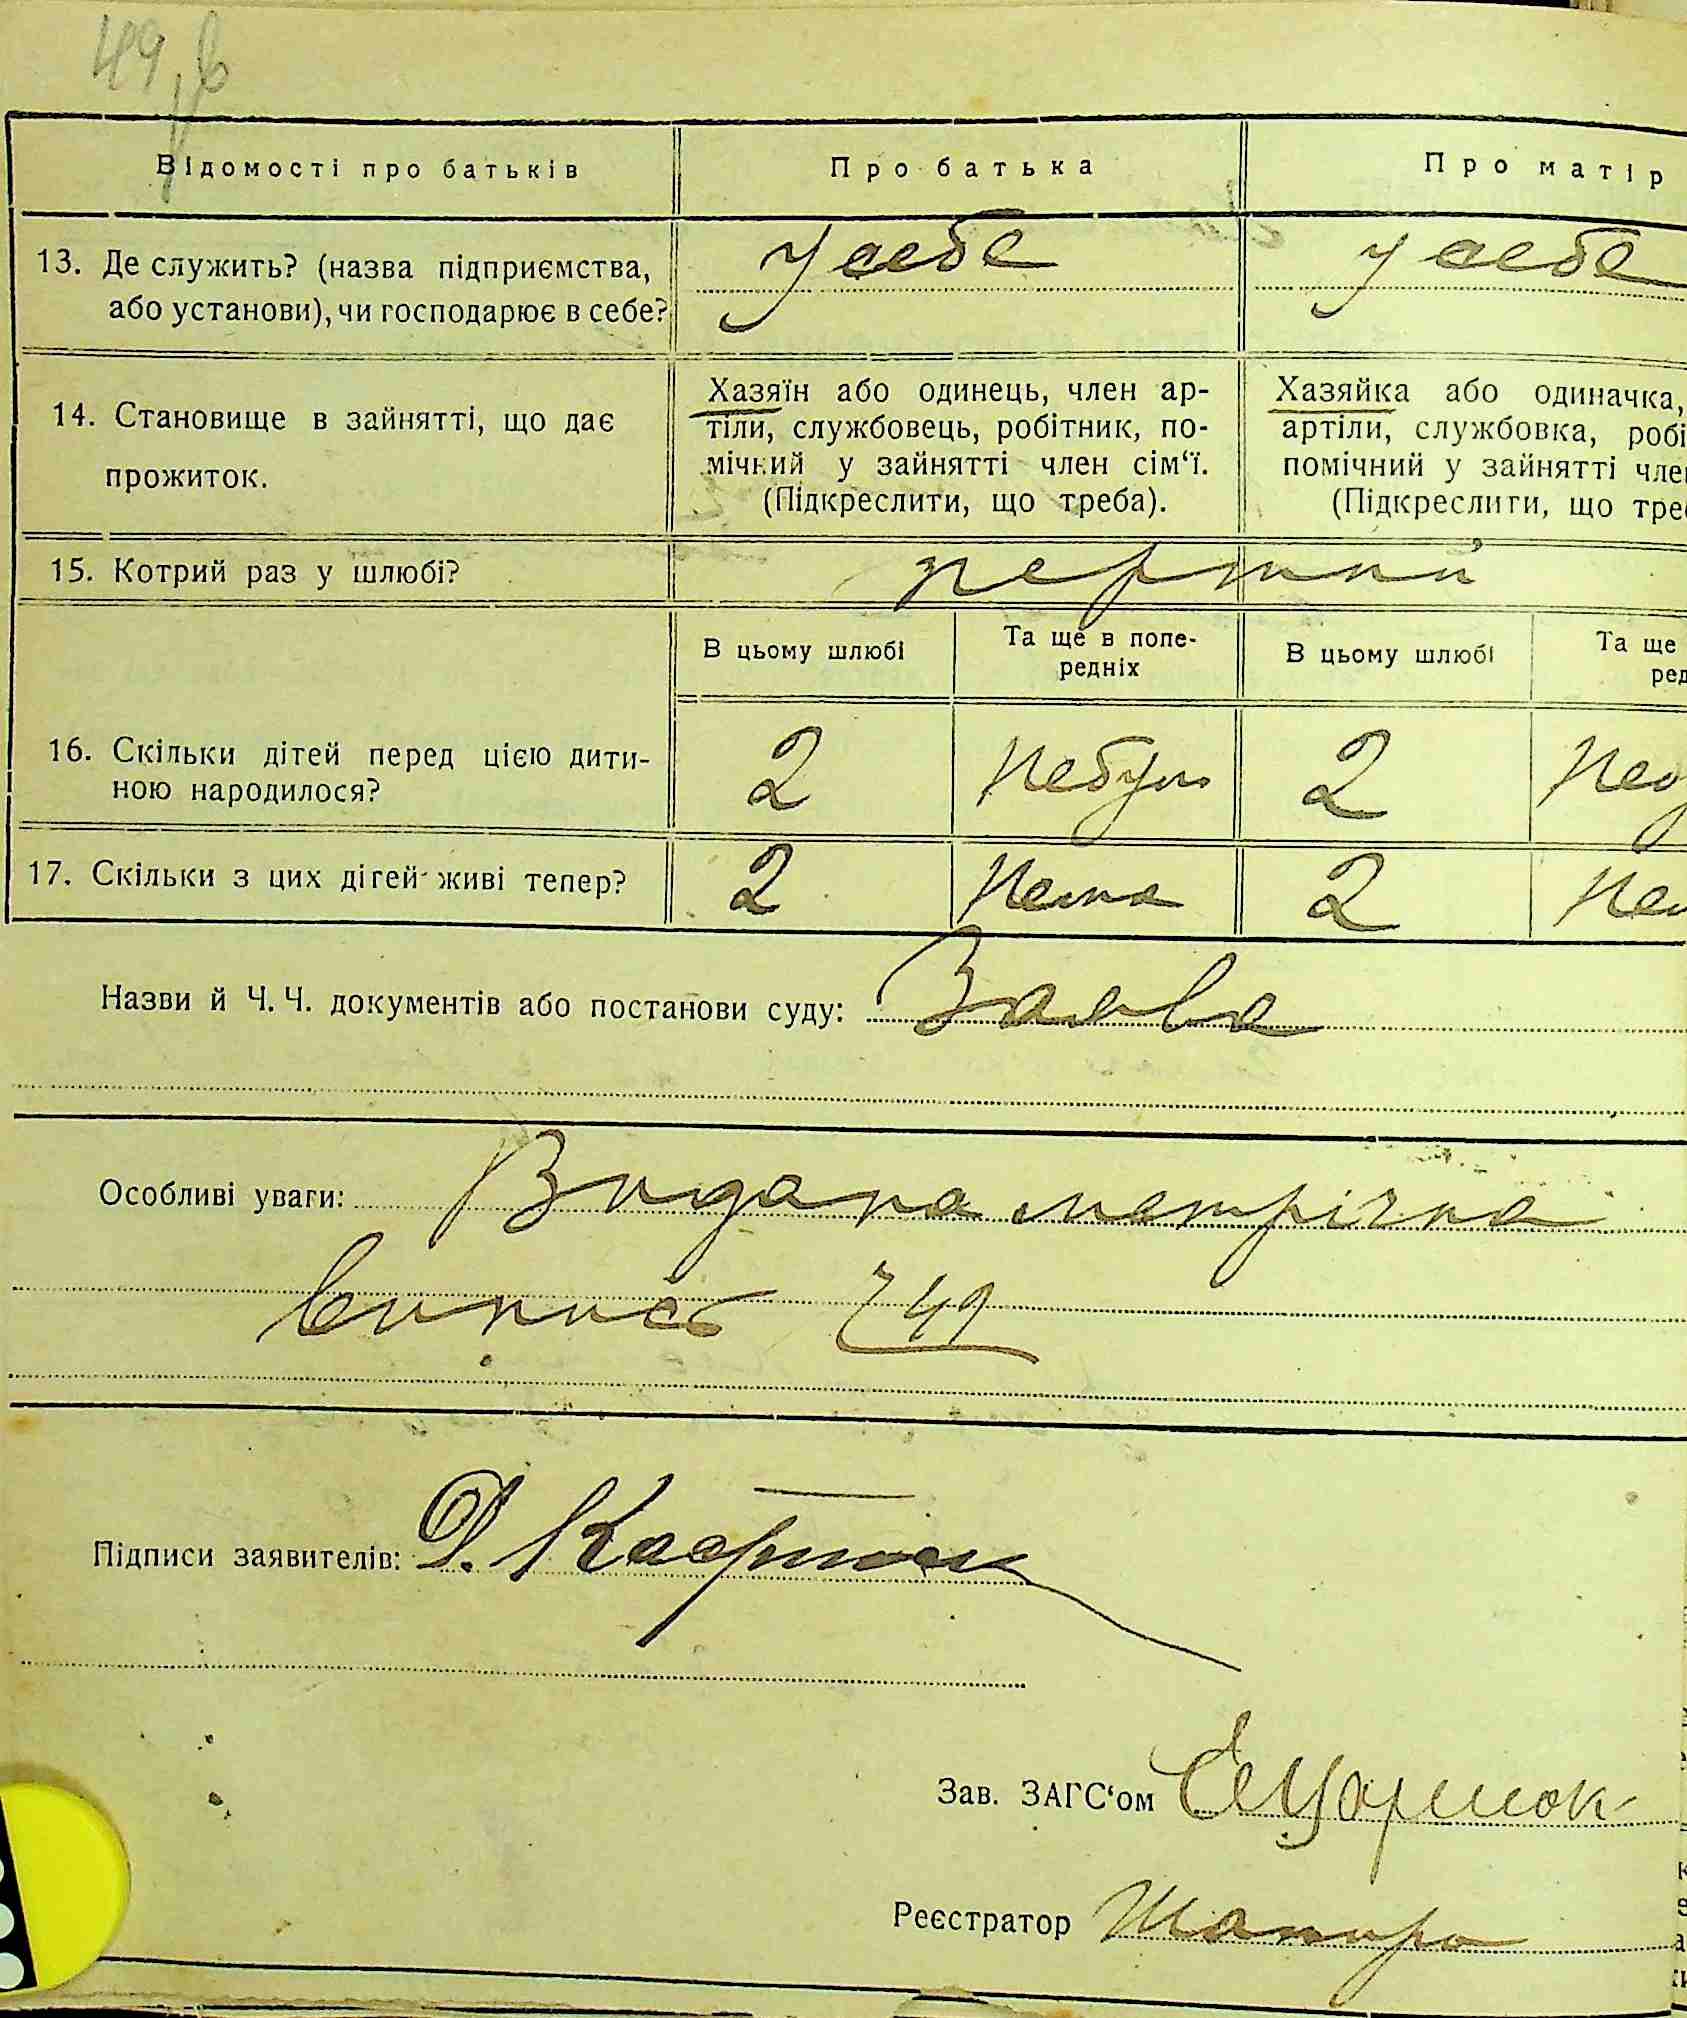 49
Відомості про батьків
Про батька
Про матір
13. Де служить? (назва підприємства,
або установи), чи господарює в себе?
у себе
у себе
14. Становище в зайнятті, що дає
прожиток.
Хазяїн або одинець, член ар-
тіли, службовець, робітник, по-
мічний у зайнятті член сім‘ї.
(Підкреслити, що треба).
Хазяйка або одиначка,
артіли, службовка, робі
помічний у зайнятті член
(Підкреслити, що треб
15. Котрий раз у шлюбі?
перший
В цьому шлюбі
Та ще в попе-
редніх
В цьому шлюбі
Та ще
ред
16. Скільки дітей перед цією дити-
ною народилося?
2
Небуло
2
Небу
17. Скільки з цих дітей живі тепер?
2
Нема
2
Нем
Назви й Ч. Ч. документів або постанови суду: Заява
Особливі уваги: Видана метрічна
випись 749
Підписи заявителів: Д.
Зав. ЗАГС‘ом
Реєстратор Шапиро